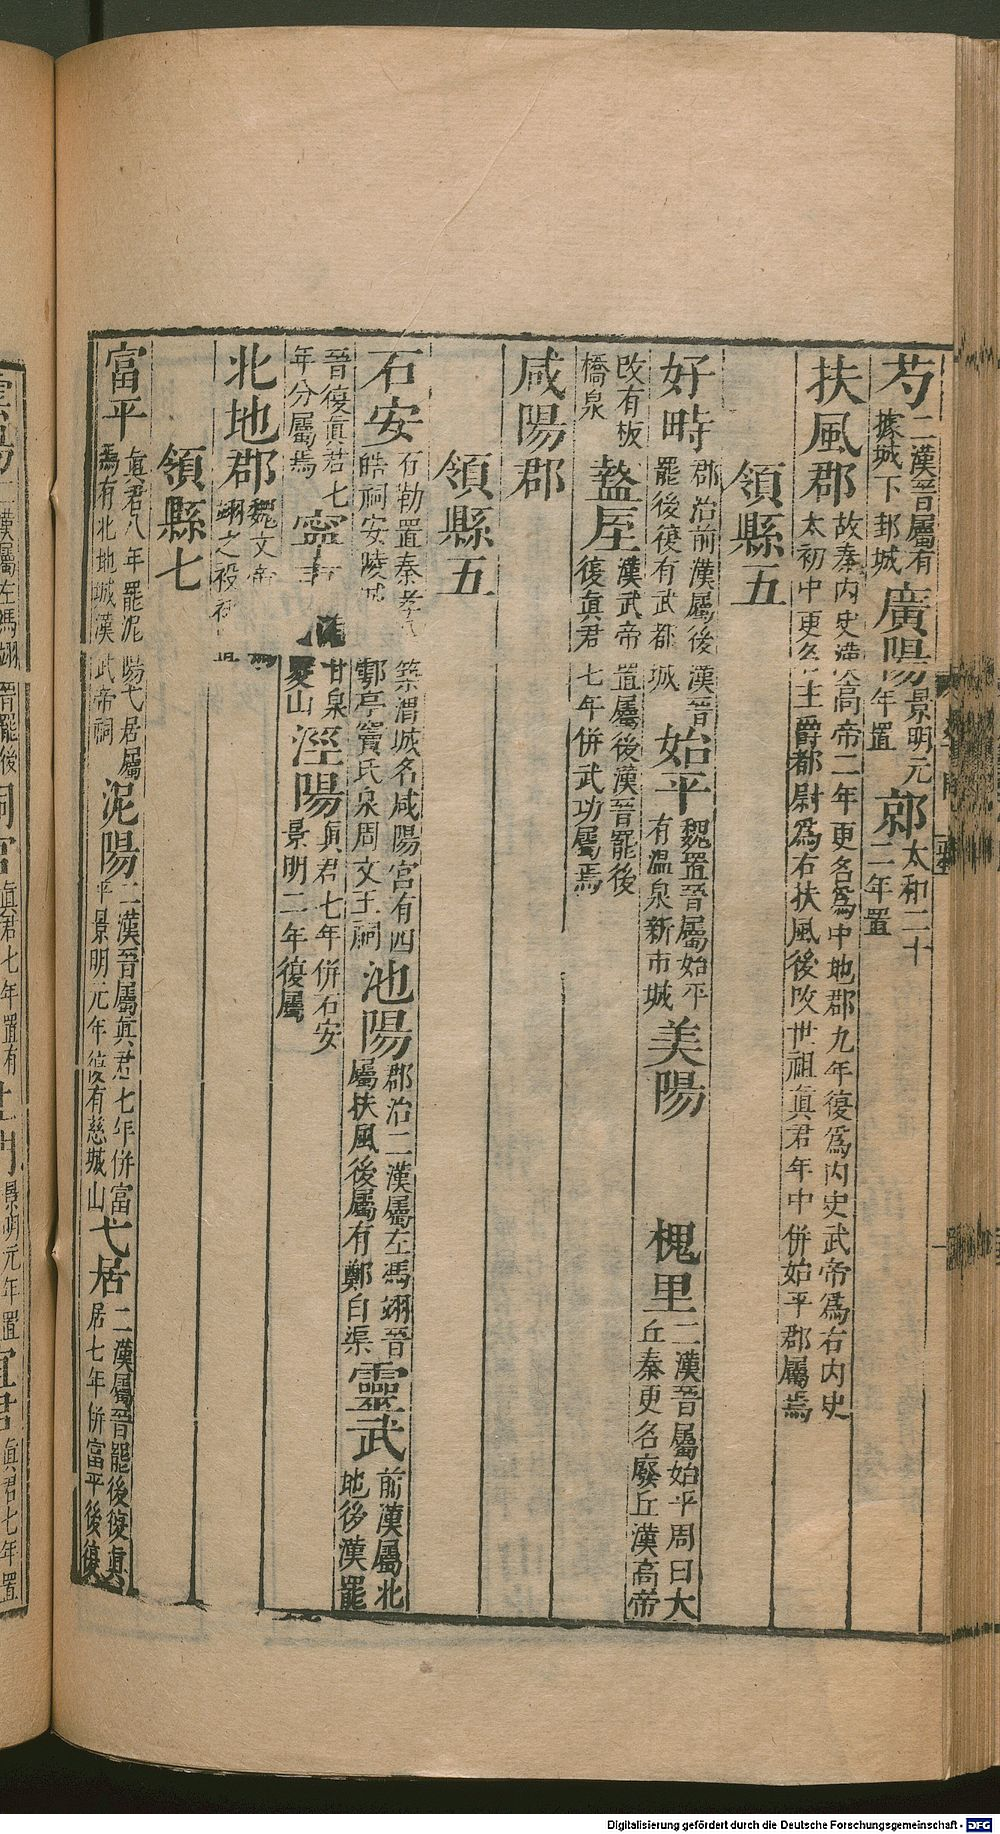 芍二漢晉屬有據城下邽城 廣陽景明元年置 鄣太和二十二年置
扶風郡故秦內史高帝二年更名爲中地郡九年復爲內史武帝爲右內史太初中更名主爵都尉爲右扶風後改世祖真君年中併始平郡屬焉
領縣五
好畤郡治前漢屬後漢晉罷後復有武都城 始平魏置晉屬始平有溫泉新市城 美陽 槐里二漢晉屬始平周曰大丘秦更名廢丘漢高帝
改有板橋泉 盩厔漢武帝置屬後漢晉罷後復真君七年併武功屬焉
咸陽郡
領縣五
石安石勒置秦孝築渭城名咸陽宮有四皓祠安陵城鄠亭竇氏泉周文王祠 池陽郡治二漢屬左馮翊晉屬扶風後屬有鄭白渠 靈武前漢屬北地後漢罷
晉復真君七年分屬焉 寧 甘泉夏山 涇陽真君七年併石安景明二年復屬
北地郡魏文帝馮翊之祋祤
領縣七
富平真君八年罷泥陽弋居屬焉有北地城漢武帝祠 泥陽二漢晉屬真君七年併富平景明元年復有慈城山 弋居二漢屬晉罷後復真居七年併富平後復
二漢屬左馮翊晉罷後 同官真君七年置有 土門景明元年置 宜君真君七年置
Digitalisierung gefördert durch die Deutsche Forschungsgemeinschaft - DFG